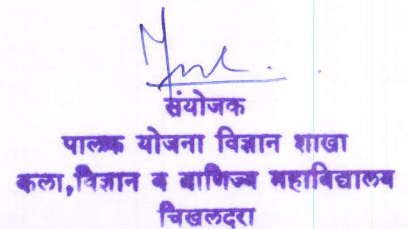 संयोजक
पालक योजना विज्ञान शाखा
कला,विज्ञान व वाणिज्य महाविद्यालय
चिखलदरा